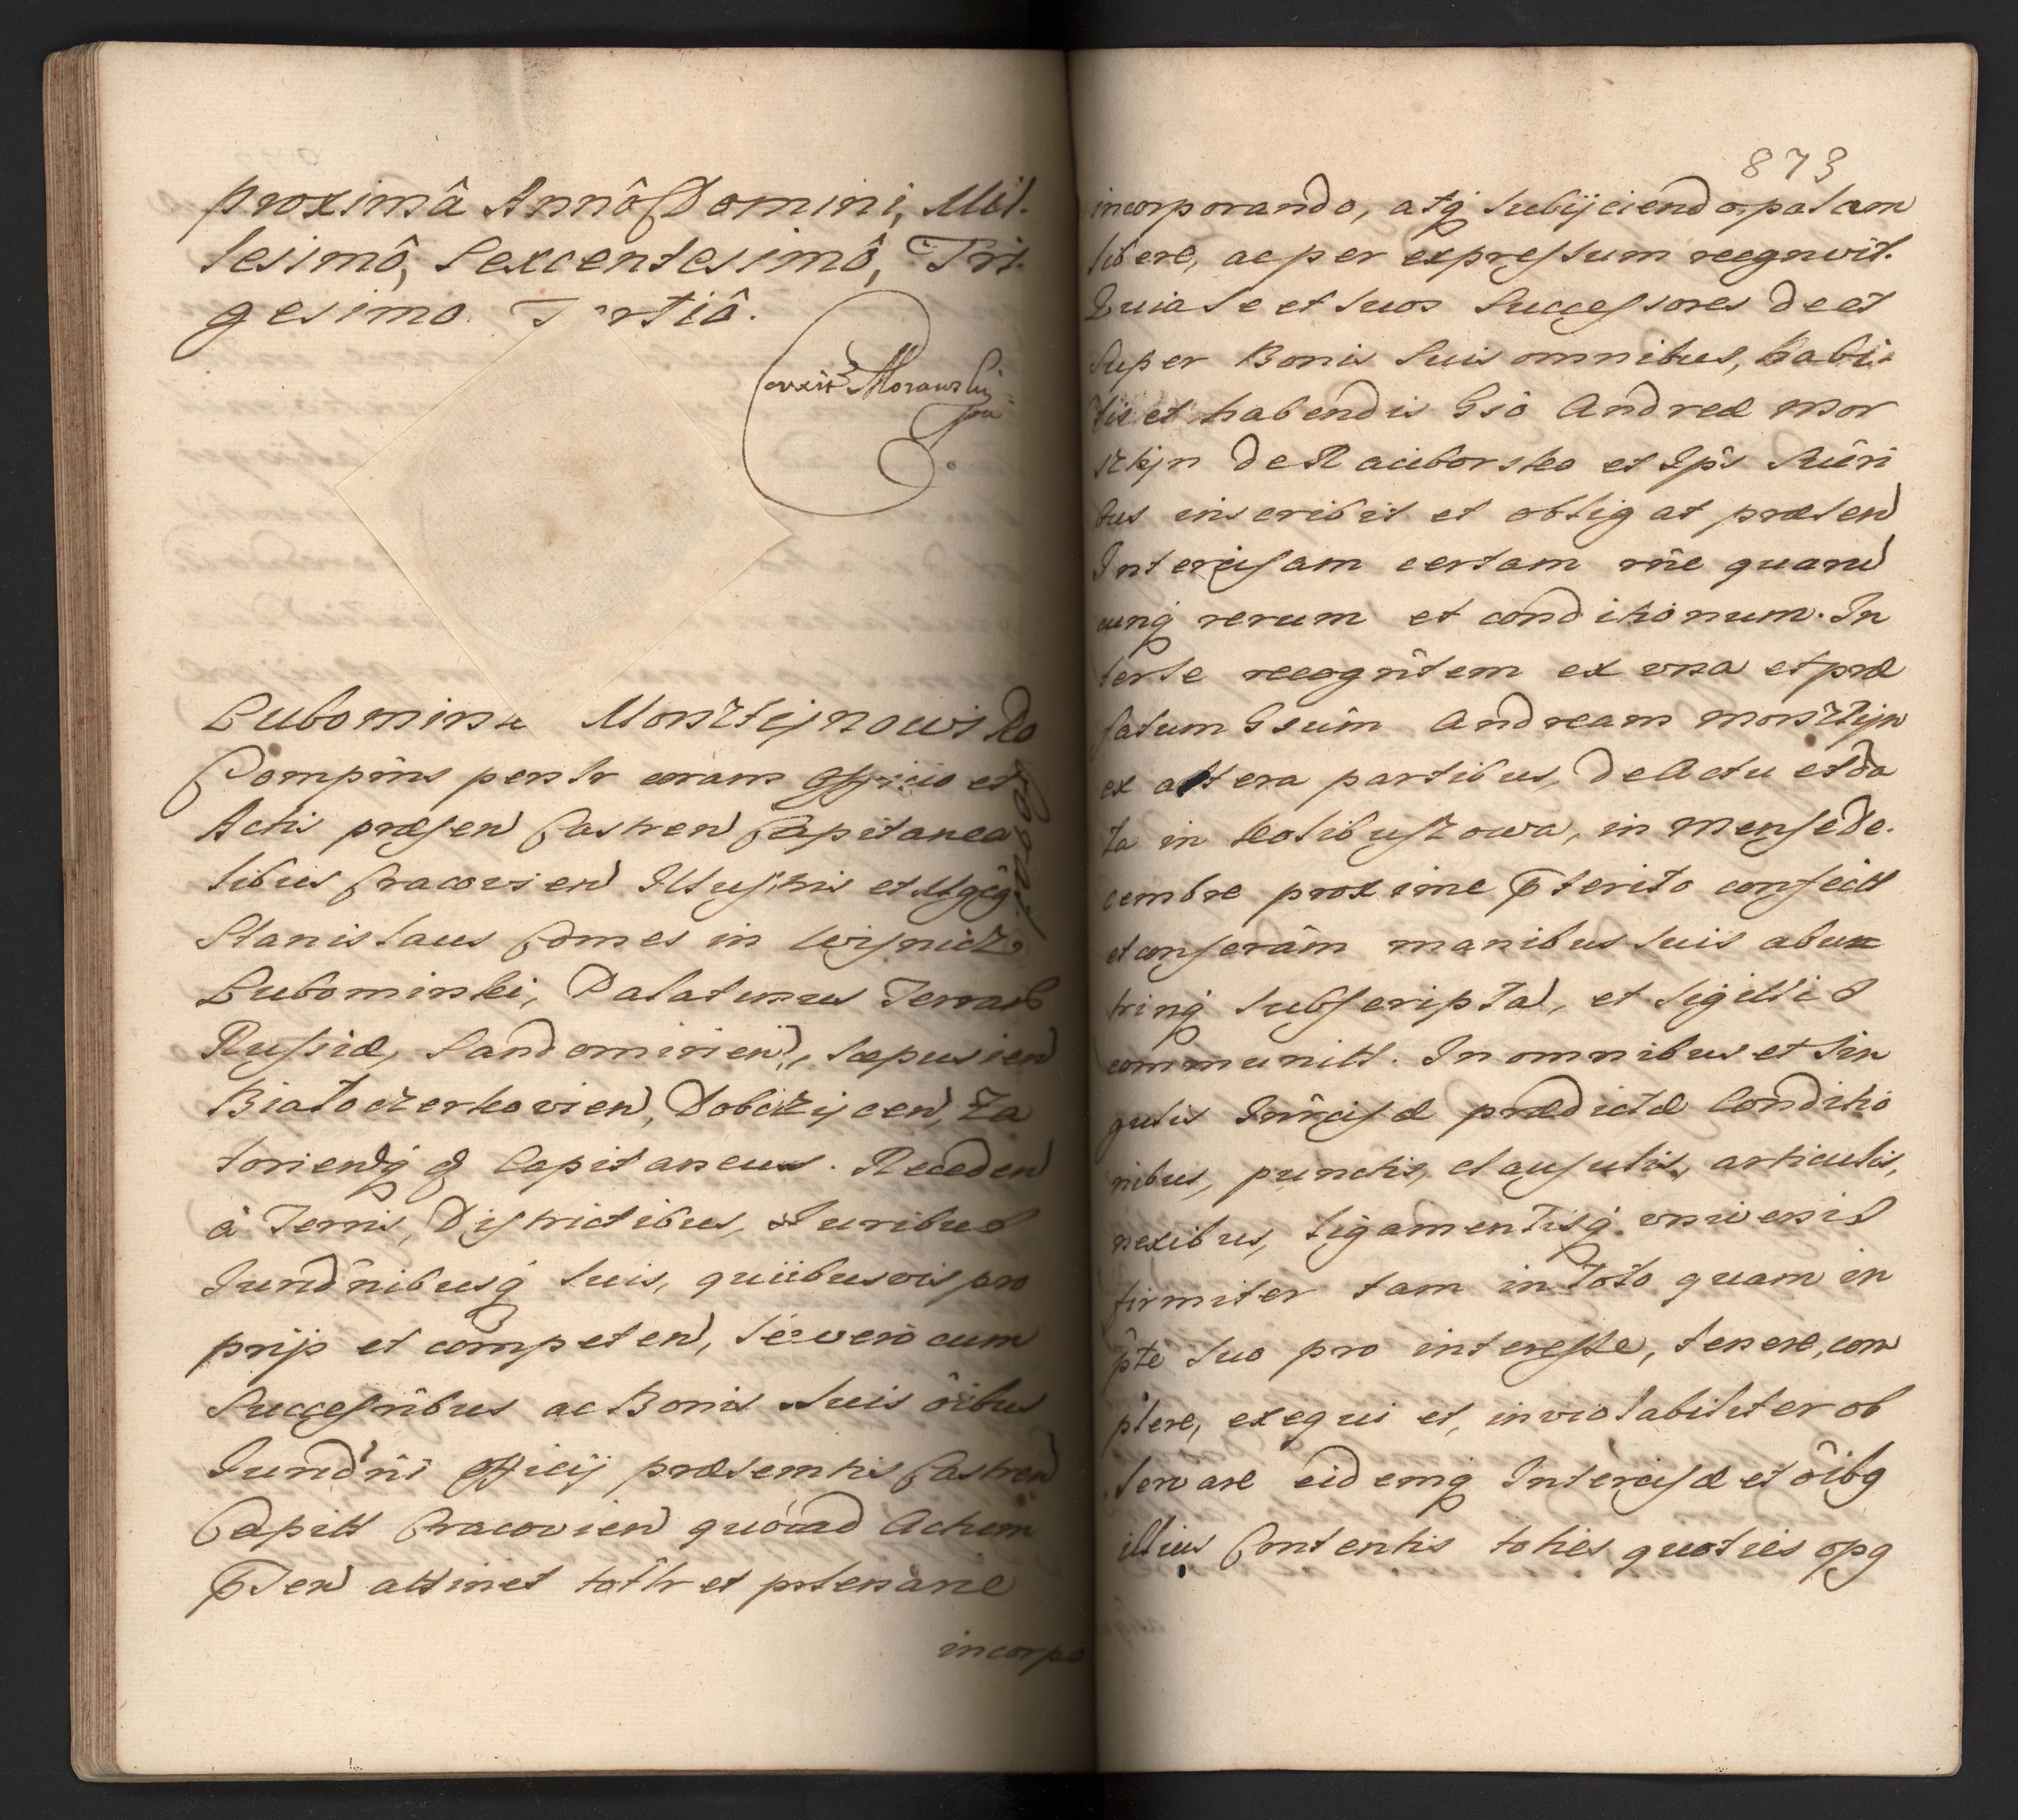 proximâ Annô Domini, Mil.
lesimô, Sexcentesimô, Tri.
gesimo. Tertiâ.
Morawski
Lubomirski Morsztejnowi Ro
borat
Compms psntr coram Officio et
Actis præsen Castren Capitanea
libus Cracovien Illustris et Mgcg
Stanislaus Comes in Wisnicz
Lubomirski, Palatinus Terrarũ
Russiæ, Sandomirien, Scepusien
Białocerkovien, Dobczijcen, Za
torienq q Capitaneus. Receden
à Terris, Districtibus, Iuribus
Iurndnibusq suis, quibusvis pro
prijs et competen, se vero cum
Successribus ac Bonis suis ôibus
Iurndni officij præsentis Castren
Capitt Cracovien quoad Actum
pnten attinet totlr et plenarie
incorpo
873
incorporando, atq subijciendo, palam
libere, ac per expressum recgnvit.
Quia se et suos Successores de et
super Bonis suis omnibus, habi-
tis et habendis Gsô Andreæ Mor
sztijn de Raciborsko et Ips Succri
bus inscribit et obligat præsen
Intercisam certam rône quarũ
cunq rerum et conditionum. In
ter se recognitem ex una et præ
fatum Gsûm Andream Morsztijn
ex altera partibus, de Actu et da
ta in Kolibuszowa, in Mense De-
cembre proxime pterito confectt
et conferâm manibus suis ab u
trinq subscripta, et sigillis
communitt. In omnibus et sin
gulis Intrcisæ prædictæ Conditio
nibus, punctis, clausulis, articulis,
nexibus, ligamentisq. universis
firmiter tam in toto quam in
pte suo pro interesse, tenere, com
plere, exequi et, inviolabiliter ob
servare eidemq Intercisæ et ôibq
illius Contentis toties quoties opq